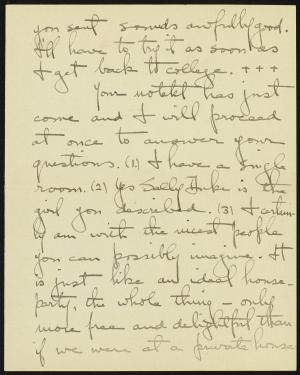 you sent sounds awfully good.
I'll have to try it as soon as
I get back to college. +++
Your note has just
come and I will proceed
at once to answer your
questions. (1) I have a single
room. (2) Yes Sally is the
girl you described. (3) I certain-
ly am with the nicest people
you can possibly imagine. It
is just like an ideal house-
party, the whole thing – only
more free and delightful than
if we were at a private house